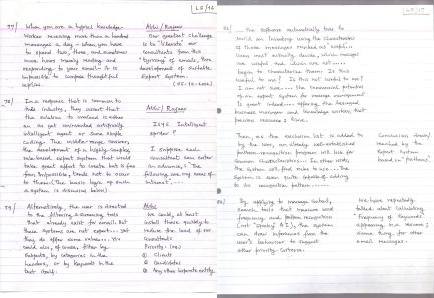 L5/16
77/ When you are a typical knowledge-
worker receiving more than a hundred
messages a day - when you have
to spend two, three, and sometimes
more hours merely reading and
responding to your email - it is
impossible to compose thoughtful
replies.
Abhi / Rajeev
Our greatest challenge
is to "liberate" our
consultants from this
tyranny of emails, thro
development of suitable
Expert System.
78/ In a response that is common to
this industry, they assert that
the solution to overload is either
an as yet uninvented artificially
intelligent agent or some simple
coding. The middle-range answer,
the development of a highly-complex
rule-based expert system that would
take great effort to create but is far
from impossible, tends not to occur
to them. The basic logic of such
a system is discussed below)
Abhi / Rajeev
Intelligent
I suppose each
consultant can enter
in advance, the
following as my areas of
interest".
79/ Alternatively, the user is directed
to the filtering & screening tools
that already exist for email. But
these systems are not expert... yet
they do offer some value... You
could also, of course, filter by
subjects, by categories in the
headers, or by keywords in the
text itself.
Abhi
We could, at least
install these quickly to
reduce the load of our
consultants
① Clients
② Candidates
③ Any other corporate entity
80/ The software automatically tries to
build an inventory using the characteristics
of those messages ranked as useful.
Users must always select which messages
are useful and which are not.....
begin to characterize them: Is this
useful to me? Is this not useful to me?
I am not sure.... the commercial potential
of an expert system for message management
is great indeed.... offering the besieged
business manager and knowledge worker that
precious resource: time.
Then, as the exclusion list is added to
by the user, an already well-established
pattern-recognition program will look for
common characteristics. In other words,
the system will find rules to use... The
system is seen quite capable of adding
to its recognition patterns...
Conclusion drawn/
reached by the
Expert System
based on "patterns".
By applying to message content,
search tools that measure word
frequency and pattern recognition
(not "spooky" AI), the system
can draw inferences from the
user's behaviour to suggest
other priority criteria.
We have repeatedly
talked about calculating
"Frequency of Keywords"
appearing in a resume;
same thing, for other
email messages.